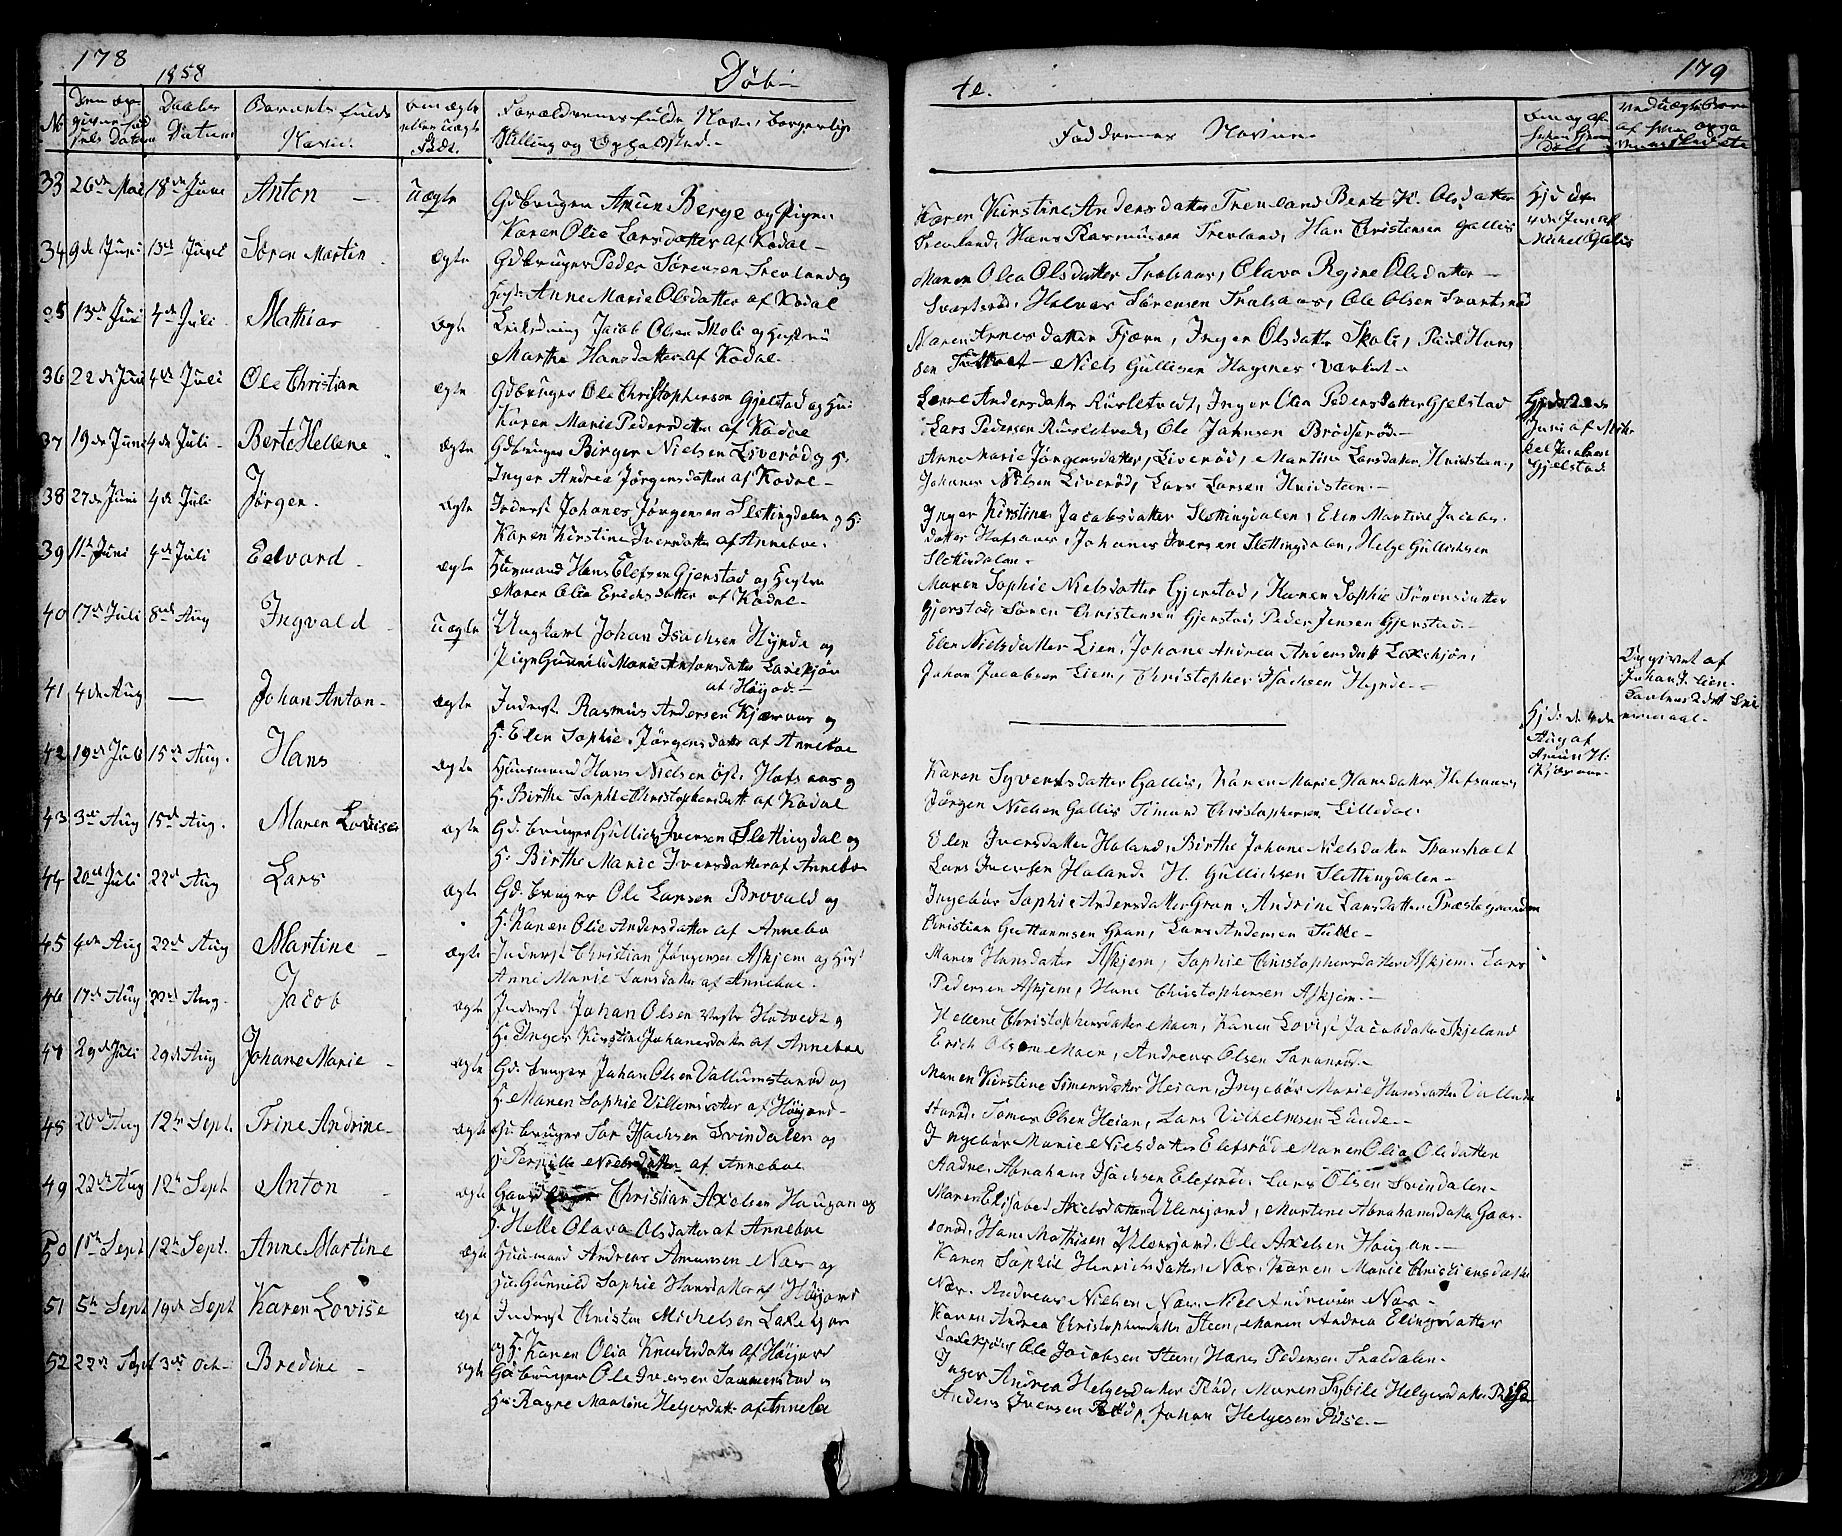 178
1858
Døb-
No
Den op-
given Fød
sels Datum
Daabs
Datum
Barnets fulde
Navn.
Om ægte
eller uægte
Født.
Forældrenes fulde Navn, borgerlige
Stilling og Opholdsted.
33 26de Mai 18de Juni Anton - Uægte Gdbruger Amun Berge og Pigen
Karen Olia Larsdatter af Kodal -
34 9de Juni 13de Juni Søren Martin - Ægte Gdbruger Peder Sørensen Trevland og
Hst: Anne Marie Olsdatter af Kodal
35 13de Juni 4de Juli Mathias Ægte Jacob Olsen Skoli og Hustru
Marthe Hansdatter af Kodal -
36 22de Juni 4de Juli Ole Christian Ægte Gdbruger Ole Christophersen Gjelstad og Hu:
Karen Marie Pedersdatter af Kodal
37 19de Juni 4de Juli - Berte Hellene Ægte Gdbruger Birger Nielsen Liverød og H:
Inger Andrea Jørgensdatter af Kodal -
38 27de Juni 4de Juli Jørgen. Ægte Inderst Johanes Jørgensen Slettingdalen og H:
Karen Kirstine Iversdatter af Anneboe.
39 11te Juni 4de Juli Edvard - Ægte Husmand Hans Elefsen Gjerstad og Hustru
Maren Olia Ericksdatter af Kodal -
40 17de Juli 8de Aug Ingvald - Uægte Ungkarl Johan Isachsen Hynde og
Pigen Gunnild Marie Antonsdatter Laxekjøn
af Høijord. -
41 4de Aug — Johan Anton - Ægte Inderst Rasmus Andersen Kjæraas og
H. Elen Sophie Jørgensdatter af Anneboe
42 19de Juli 15de Aug. Hans Ægte Huusmand Hans Nielsen øst. Hofsaas og
H. Birthe Sophie Christophersdatt af Kodal
43 3de Aug 15de Aug. Maren Lovise Ægte Gd. bruger Gullich Iversen Slettingdal og
H. Birthe Marie Iversdatter af Anneboe
44 20de Juli 22de Aug Lars Ægte Gd. bruger Ole Larsen Brovald og
H. Karen Olia Andersdatter af Annebo
45 4de Aug 22de Aug Martine - Ægte Inderst Christian Jørgensen Askjem og Hust
Anne Marie Larsdatter af Anneboe.
46 17de Aug 22de Aug. Jacob Ægte Inderst Johan Olsen Hotvedt og
H. Inger Kirstine Johanesdatter af Anneboe
47 29de Juli 29de Aug Johane Marie - Ægte Gd. bruger Johan Olsen Vallumstanrød og
H. Maren Sophie Villemsdatter af Høijord -
48 20de Aug 12te Sept. Trine Andrine - Ægte Gd. bruger Tor Isachsen Svindalen og
H. Pernille Nielsdatter af Anneboe
49 22de Aug 12te Sept Anton - Ægte Christian Axelsen Haugan og
H. Helle Olava Olsdatter af Anneboe
50 1ste Sept 12te Sept. Anne Martine Ægte Huusmand Andreas Amunsen Næs og
Hu: Gunnild Sophie Hansdatter af Høijord
51 5te Sept 19de Sept Karen Lovise Ægte Inderst Christen Michelsen Laxekjøn
og H. Karen Olia Knudsdatter af Høijord
52 22de Sept 3de Oct - Bredine - Ægte Gd. bruger Ole Iversen Sommerstad og
Hu: Ragne Martine Helgesdatt: af Annebo
179
te.
Faddrenes Navne.
ved uægte Børn
Karen Kirstine Andersdatter Trevland Berte K. Olsdatter
Trevland, Hans Rasmusen Trevland, Han Christensen Gallis
Hjd. den
4de Juni af
Mikel Gallis
Maren Olea Olsdatter Tralsaas, Olava Regine Olsdatter -
Svarterød. Halvor Sørensen Tralsaas, Ole Olsen Svarterød
Maren Arnesdatter Fjære, Inger Olsdatter Skoli, Paul Han
sen - Niels Gullisen Hagenes Værket. -
Larve Andersdatter Rusletvedt, Inger Olia Pedersdatter Gjelstad
Lars Pedersen Rusletvedt, Ole Johnsen Brodserød. -
Hjd. 22de
Juni af Mik
kel Jacobsen
Gjelstad.
Anne Marie Jørgensdatter, Liverød, Martine Larsdatter, Hvidsten,
Johanes Nielsen Liverød, Lars Larsen Hvidsten. -
Inger Kirstine Jacobsdatter Slettingdalen, Elen Martine Jacobs
datter Hofsaas, Johanes Iversen Slettingdalen, Helge Gullichsen
Slettindalen -
Maren Sophie Nielsdatter Gjerstad, Karen Sophie Sørensdatter
Gjerstad, Søren Christensen Gjerstad, Peder Jensen Gjerstad. -
Elen Nielsdatter Lien, Johane Andrea Andersdatt Laxekjøn,
Johan Jacobsen Liem, Christopher Isachsen Hynde. -
Opgivet af
Johan I. Lien
Hjd: de 4de
Aug af
Amun H:
Kjæraas.
Karen Syvertsdatter Gallis, Karen Marie Hansdatter Hofsaas,
Jørgen Nielsen Gallis Simund Christophersen Lilledal.
Elen Iversdatter Haland, Birthe Johane Nielsdatter Tranholt
Lars Iversen Haland. H. Gullichsen Slettingdalen -
Ingebor Sophie Andersdatter Gran, Andrine Larsdatter Præstegaarden
Christian Guttormsen Gran, Lars Andersen Fulke -
Maren Hansdatter Askjem, Sophie Christophersdatter Askjem. Lars
Pedersen Askjem, Hans Christophersen Askjem. -
Hellene Christophersdatter Moen, Karen Lovise Jacobsdatter Skjeland
Erich Olsen Moen, Andreas Olsen Taranrød. -
Maren Kirstine Simensdatter Heian, Ingebor Marie Hansdatter Vallum
stanrød. Tomas Olsen Heian, Lars Vilhelmsen Lunde -
Ingebor Marie Nielsdatter Elefsrød Maren Olia Olsdatter
Aadne. Abraham Isachsen Elefsrød. Lars Olsen Svindalen -
Maren Elisabet Axelsdatter Ulensjord, Martine Abrahamsdatter Gaas-
Hans Mathisen Ulensjord. Ole Axelsen Haugan. -
Karen Sophie Henrichsdatter, Næs. Karen Marie Christiensdatter
Næs. Andreas Nielsen Næs. Niel Andresen Næs -
Karen Andrea Christophersdatter Steen, Maren Andrea Elingsdatter
Laxekjøn Ole Jacobsen Steen, Hans Pedersen Traldalen -
Inger Andrea Helgesdatter Rød, Maren Sybile Helgesdatter Pise
Anders Iversen Rød, Johan Helgesen Pise. -